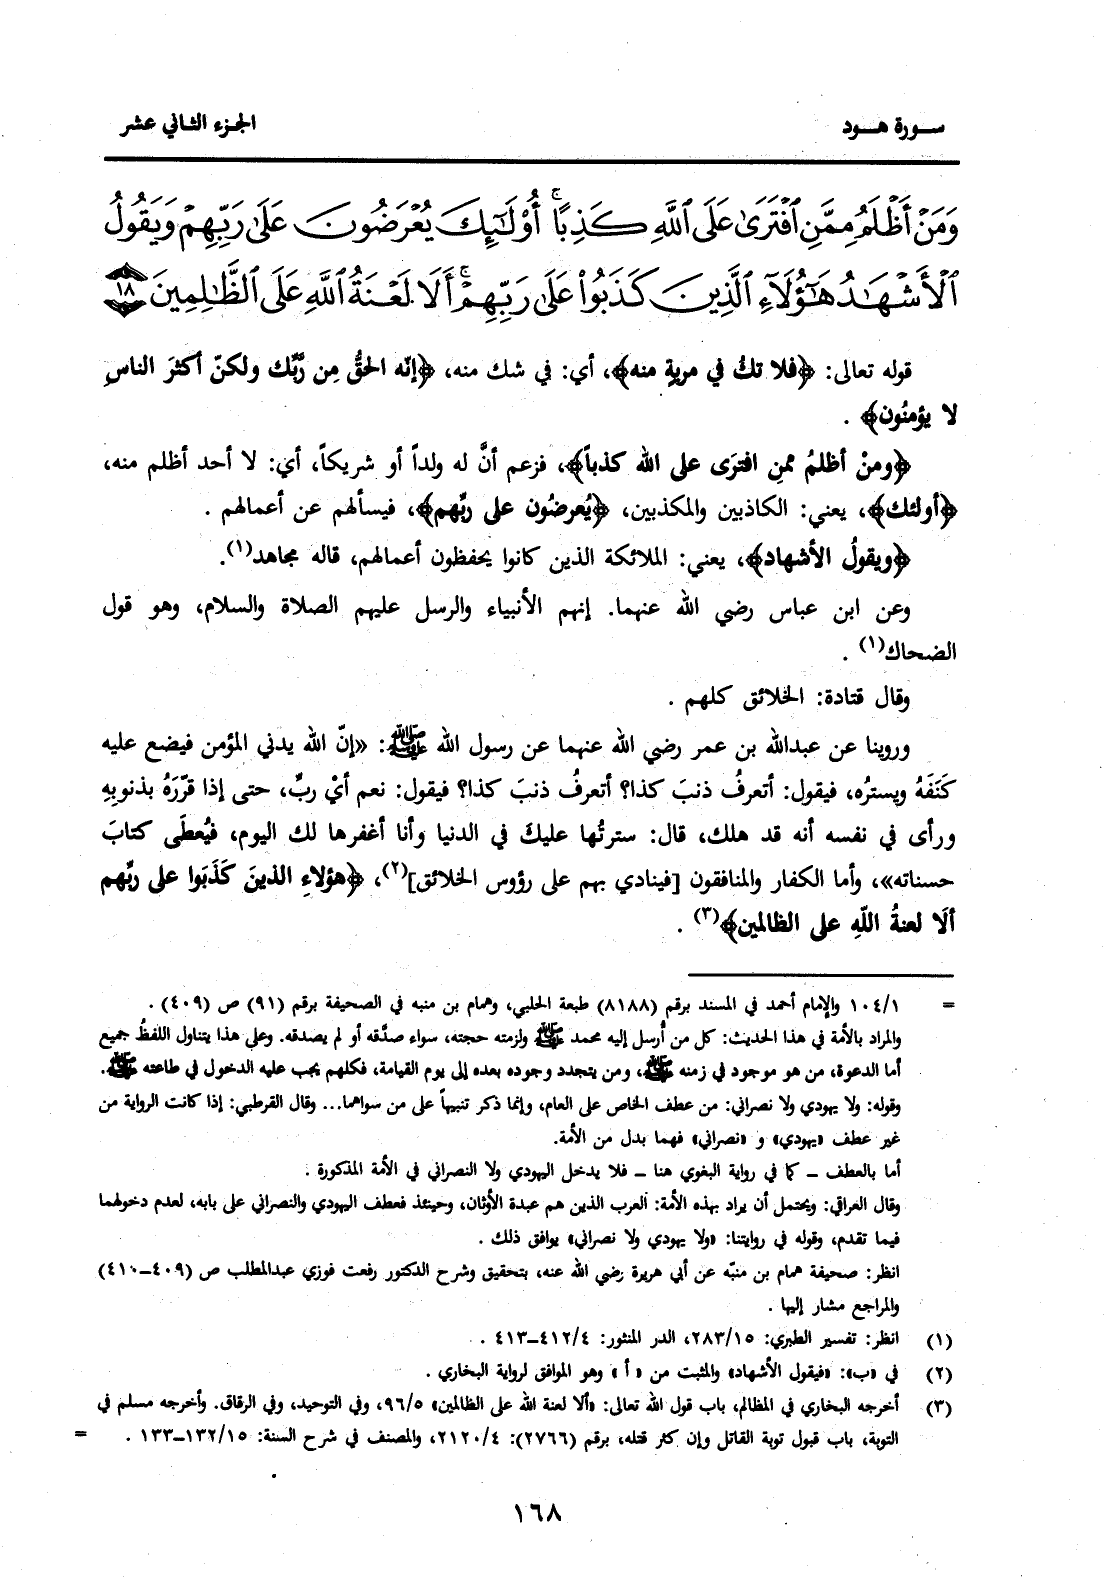 سورة هود
الجزء الثاني عشر
وَمَنْ أَظْلَمُ مِمَّنِ ٱفْتَرَىٰ عَلَى ٱللَّهِ كَذِبًا ۚ أُو۟لَـٰٓئِكَ يُعْرَضُونَ عَلَىٰ رَبِّهِمْ وَيَقُولُ
ٱلْأَشْهَـٰدُ هَـٰٓؤُلَآءِ ٱلَّذِينَ كَذَبُوا۟ عَلَىٰ رَبِّهِمْ ۚ أَلَا لَعْنَةُ ٱللَّهِ عَلَى ٱلظَّـٰلِمِينَ ١٨
قوله تعالى: ﴿فلا تكُ في مريةٍ منه﴾، أي: في شك منه، ﴿إنّه الحقُّ مِن رَّبِّك ولكنّ أكثرَ الناسِ
لا يؤمنُون﴾ .
﴿ومنْ أظلمُ ممنِ افترَى على الله كذباً﴾، فزعم أنَّ له ولداً أو شريكاً، أي: لا أحد أظلم منه،
﴿أولئك﴾، يعني: الكاذبين والمكذبين، ﴿يُعرضُون على ربِّهم﴾، فيسألهم عن أعمالهم .
﴿ويقولُ الأشهاد﴾، يعني: الملائكة الذين كانوا يحفظون أعمالهم، قاله مجاهد(١).
وعن ابن عباس رضي الله عنهما. إنهم الأنبياء والرسل عليهم الصلاة والسلام، وهو قول
الضحاك(١) .
وقال قتادة: الخلائق كلهم .
وروينا عن عبدالله بن عمر رضي الله عنهما عن رسول الله ﷺ: «إنّ الله يدني المؤمن فيضع عليه
كَنَفَهُ ويسترُه، فيقول: أتعرفُ ذنبَ كذا؟ أتعرفُ ذنبَ كذا؟ فيقول: نعم أيْ ربِّ، حتى إذا قرّرَهُ بذنوبِهِ
ورأى في نفسه أنه قد هلك، قال: سترتُها عليكَ في الدنيا وأنا أغفرها لك اليوم، فيُعطَى كتابَ
حسناته»، وأما الكفار والمنافقون [فينادي بهم على رؤوس الخلائق](٢)، ﴿هؤلاءِ الذينَ كَذَبَوا على ربِّهم
ألَا لعنةُ اللّهِ على الظالمين﴾(٣) .
= ١/‏١٠٤ والإمام أحمد في المسند برقم (٨١٨٨) طبعة الحلبي، وهمام بن منبه في الصحيفة برقم (٩١) ص (٤٠٩) .
والمراد بالأمة في هذا الحديث: كل من أُرسل إليه محمد ﷺ ولزمته حجته، سواء صدَّقه أو لم يصدقه. وعلى هذا يتناول اللفظُ جميع
أما الدعوة، من هو موجود في زمنه ﷺ، ومن يتجدد وجوده بعده إلى يوم القيامة، فكلهم يجب عليه الدخول في طاعته ﷺ.
وقوله: ولا يهودي ولا نصراني: من عطف الخاص على العام، وإنما ذكر تنبيهاً على من سواهما... وقال القرطبي: إذا كانت الرواية من
غير عطف «يهودي» و «نصراني» فهما بدل من الأمة.
أما بالعطف ــ كما في رواية البغوي هنا ــ فلا يدخل اليهودي ولا النصراني في الأمة المذكورة .
وقال العراقي: ويحتمل أن يراد بهذه الأمة: العرب الذين هم عبدة الأوثان، وحينئذ فعطف اليهودي والنصراني على بابه، لعدم دخولهما
فيما تقدم، وقوله في روايتنا: «ولا يهودي ولا نصراني» يوافق ذلك .
انظر: صحيفة همام بن منبّه عن أبي هريرة رضي الله عنه، بتحقيق وشرح الدكتور رفعت فوزي عبدالمطلب ص (٤٠٩ــ٤١٠)
والمراجع مشار إليها .
(١) انظر: تفسير الطبري: ١٥/‏٢٨٣، الدر المنثور: ٤/‏٤١٢ــ٤١٣ .
(٢) في «ب»: «فيقول الأشهاد» والمثبت من « أ » وهو الموافق لرواية البخاري .
(٣) أخرجه البخاري في المظالم، باب قول الله تعالى: «ألا لعنة الله على الظالمين» ٥/‏٩٦، وفي التوحيد، وفي الرقاق. وأخرجه مسلم في
التوبة، باب قبول توبة القاتل وإن كثر قتله، برقم (٢٧٦٦): ٤/‏٢١٢٠، والمصنف في شرح السنة: ١٥/‏١٣٢ــ١٣٣ . =
١٦٨